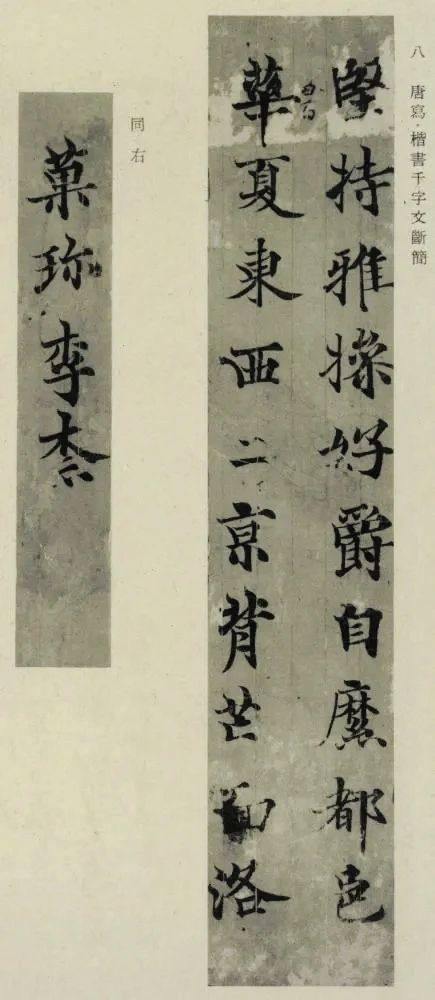 八 唐寫·楷書千字文斷簡
堅持雅操好爵自縻都邑
華夏東西二京背芒面洛
同右
菓珍李柰